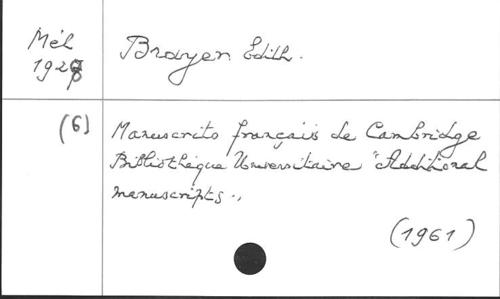 Mél
1928
Brayer Edith.
(6)
Manuscrits français de Cambridge
Bibliothèque Universitaire "Additional
manuscripts".
(1961)